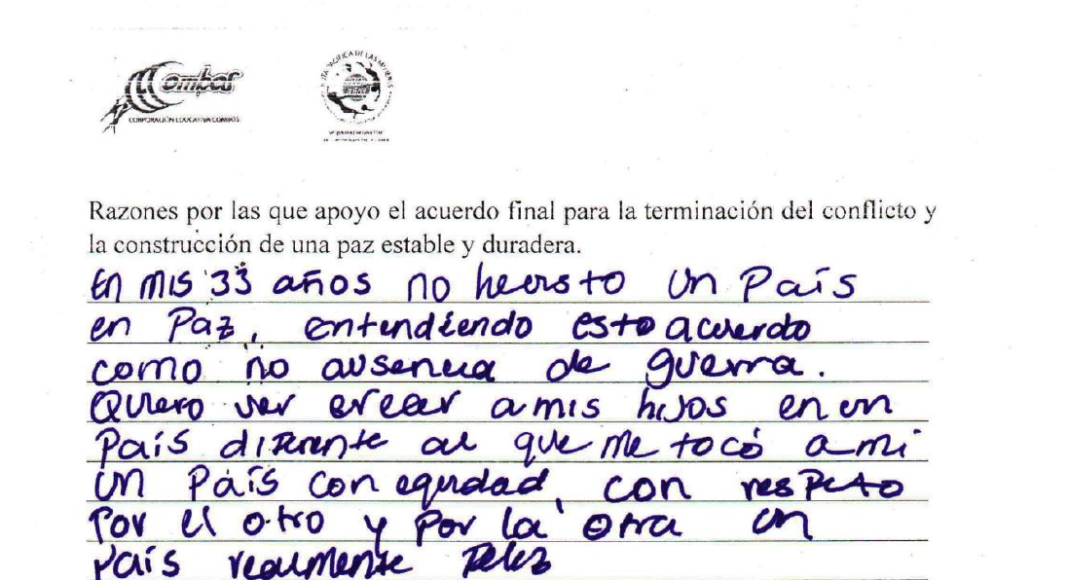 Combos
CORPORACIÓN EDUCATIVA COMBOS
RUTA PACIFICA DE LAS MUJERES
Razones por las que apoyo el acuerdo final para la terminación del conflicto y
la construcción de una paz estable y duradera.
En mis 33 años no he visto un País
en Paz, entendiendo esto acuerdo
como no ausencia de guerra.
Quiero ver crecer a mis hijos en un
País diferente al que me tocó a mi
un País con equidad, con respeto
Por el otro y Por la otra un
País realmente feliz